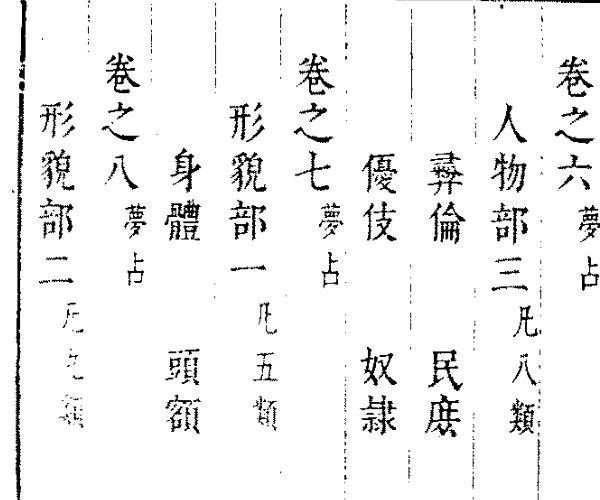 卷之六 夢占
人物部三 凡八類
彞倫 民庶
優伎 奴隷
卷之七 夢占
形貌部一 凡五類
身體 頭額
卷之八 夢占
形貌部二 凡九類